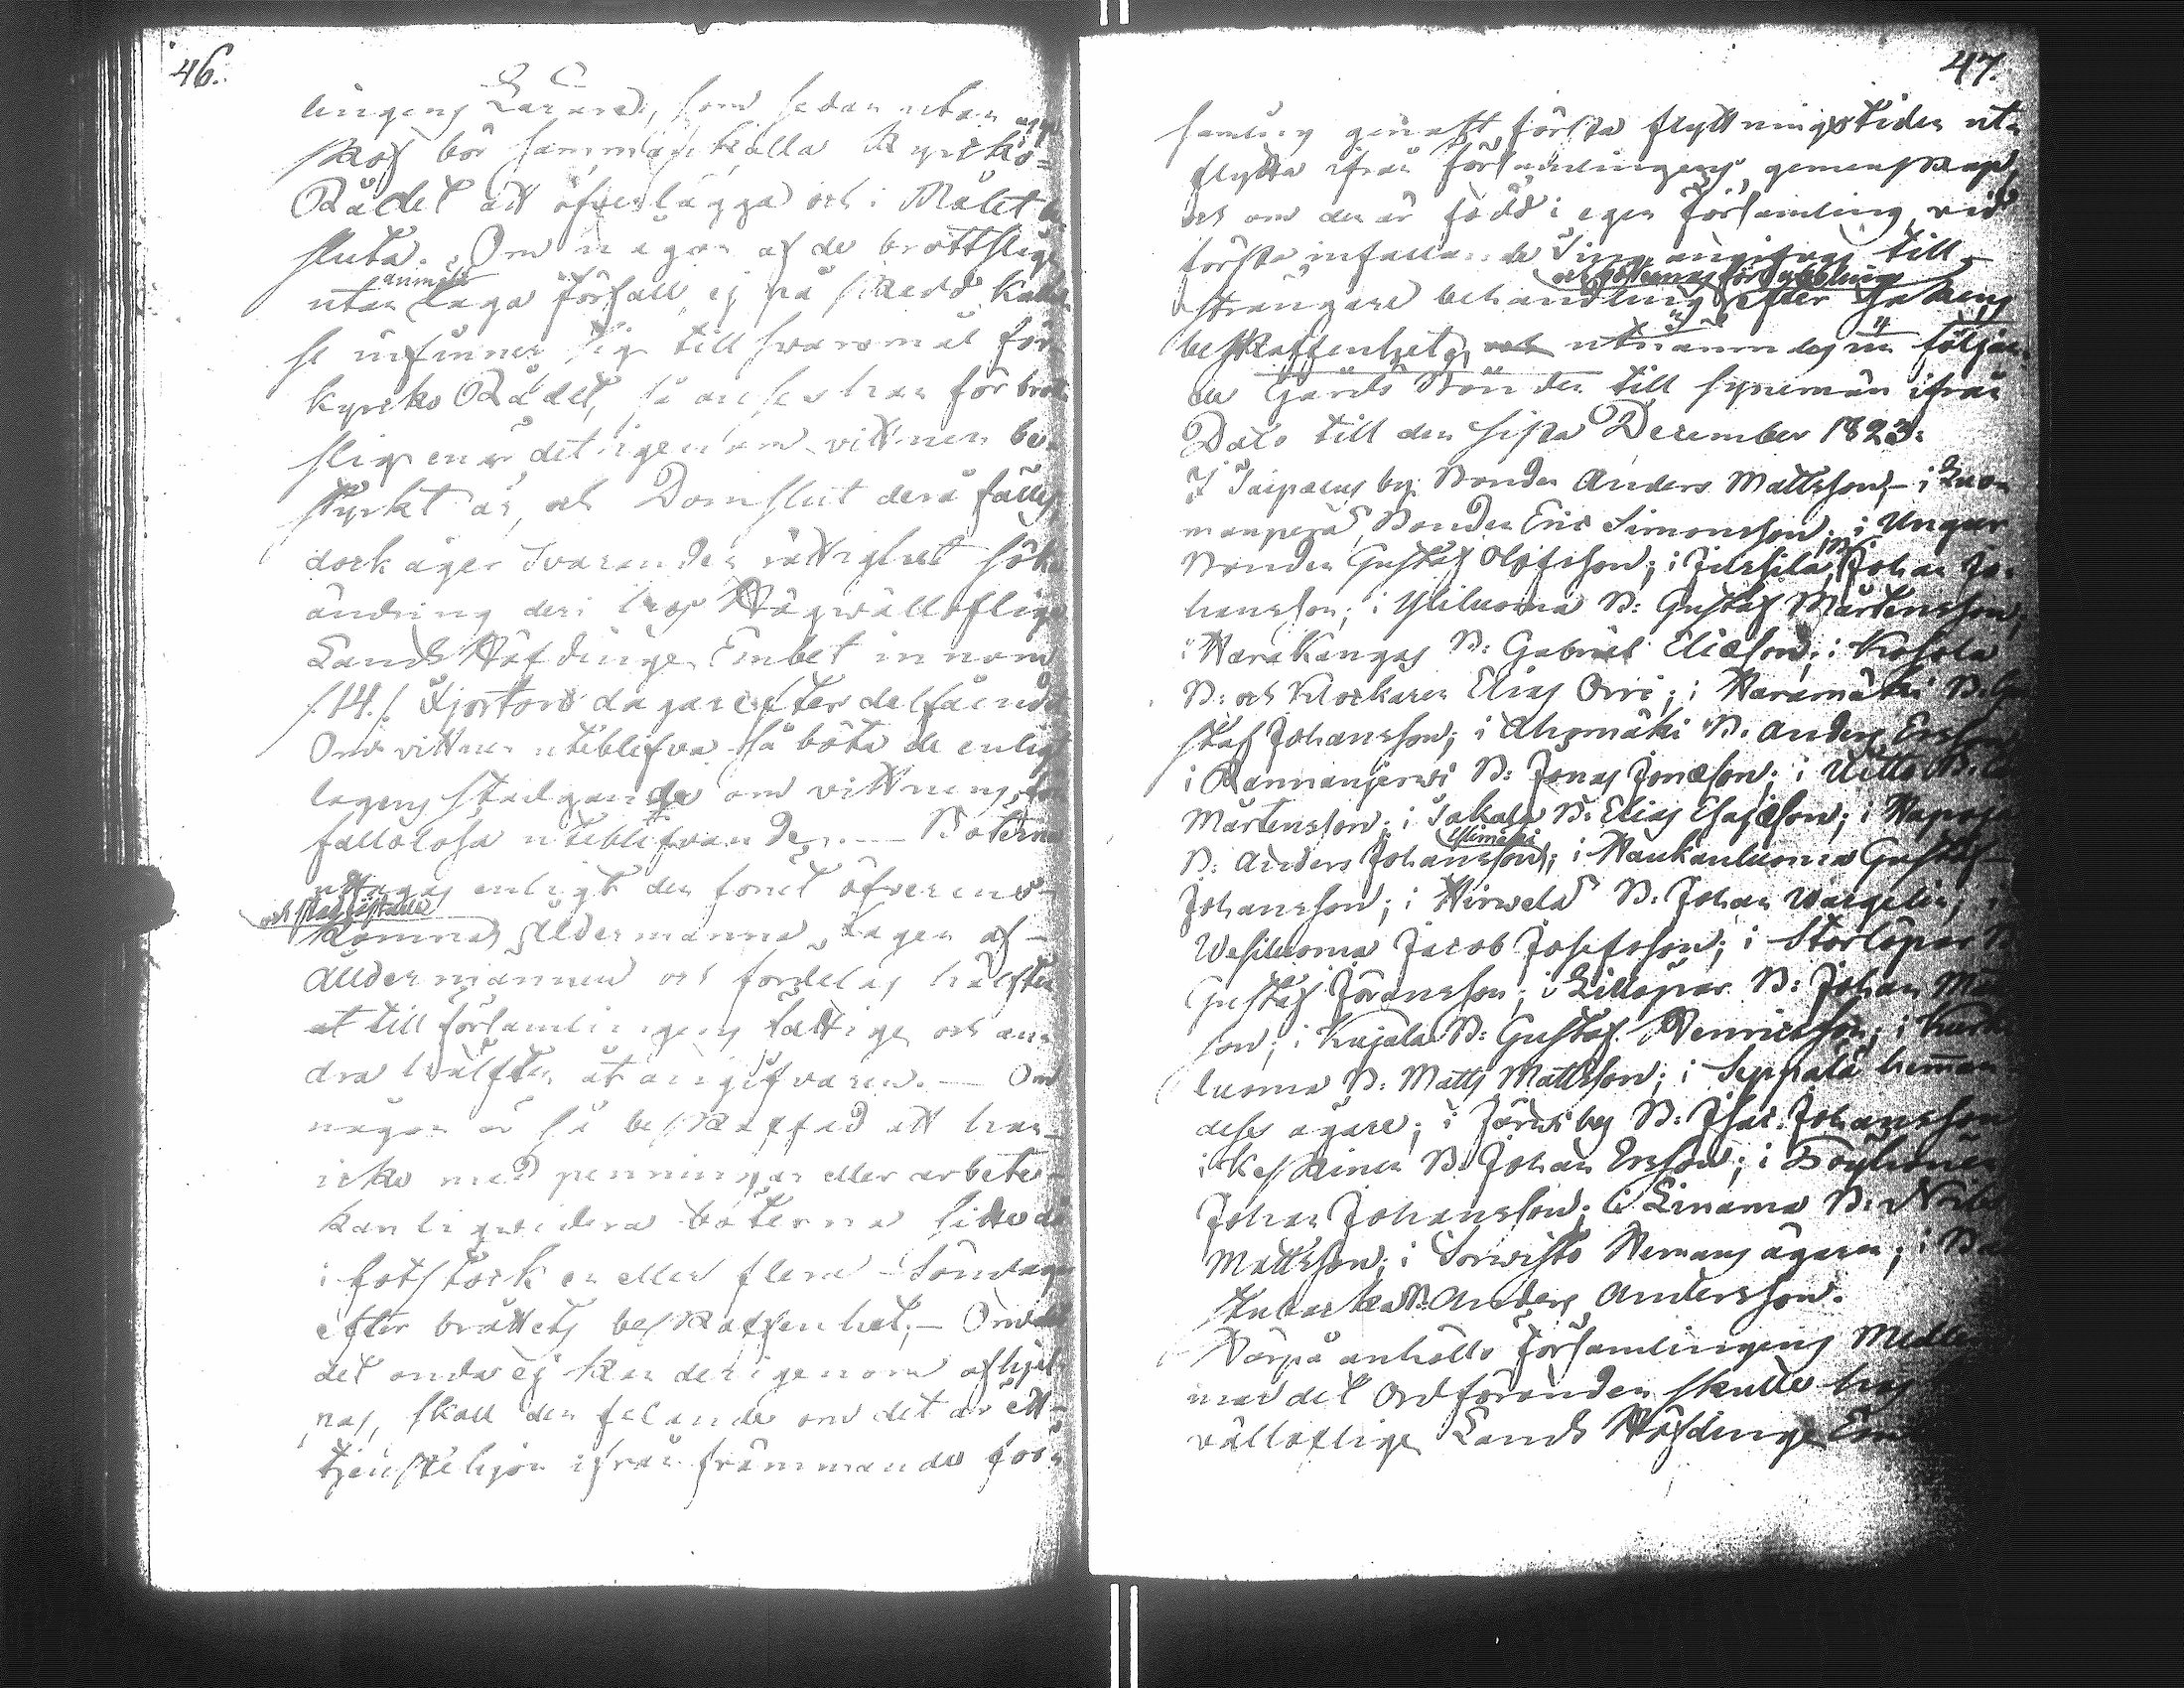 46.
lingens Lärare, som sedan utan upp
skof bör sammankalla Kyrko-
Rådet att öfverlägga och i Målet be
sluta. Om någon af de brottslige
utan anmält laga förfall ej på skedd kallel
se infinner sig till svaromål för
kyrko Rådet, så anses han för brott
slig enär det igenom vittnen be-
styrkt är, och Domslut derå fälles,
dock äger Svaranden rättighet söka
ändring deri hos Högwälloflige
Lands Höfdinge Embet innom
/.14./ Fjorton dagar efter delfåendet
Om vittnen uteblifva så böte de enligt
lagens stadgande om vittnens för
fallolösa uteblifvande. — Böterne
uttagas enligt den förut öfverens-
komna och fastställda Åldermanna lagen af
Åldermannen och fördelas hälften
at till församlingens fattige och an-
dra hälften åt angifvaren. — Om
någon är så beskaffad att han
icke med penningar eller arbete
kan liqwidera böterna sitte då
i fotstock en eller flera Söndagar
efter brottets beskaffenhet; — Om
det onda ej kan derigenom afhjel-
pas, skall den felande om det är ett
tjenstehjon ifrån främmande för-
47.
samling genast första flyttningstiden ut-
flytta ifrån församlingens gemenskap,
och om den är född i egen församling, vid
första infallande Ting angifvas till
strängare behandling och böternas fördubbling efter sakens
beskaffenhet; och utnämndes nu följan-
de Gårds Bönder till synemän ifrån
Dato till den sista December 1823:
I Taipalus by Bonden Anders Mattsson, — i Luo-
manperä Bonden Eric Simonsson; i Ungar
Bonden Gustaf Olofsson; i Jussila B: Johan Jo-
hansson; i Yliluoma B: Gustaf Mårtensson;
i Harakangas B: Gabriel Eliæson; i Kosola
B: och Klockaren Elias Orri; i Haramäki B. Gu
staf Johansson; i Ahomäki B. Anders Ersson
i Rannanjerwi B: Jonas Jonæson; i Uitto B:
Mårtensson; i Jakala B: Elias Esaiæson; i Haposa
B: Anders Johansson Ylimäki; i Haukanluoma Gustaf
Johansson; i Hirwelä B. Johan Wargelin, i
Wesiluoma Jacob Josefsson; i Storlöpar B
Gustaf Jöransson; i Lillöpar B: Johan Mats
son; i Kujala B: Gustaf Henricsson; i Kurk
luoma B: Matts Mattsson; i Seppälä hemman
dess ägare; i Järwi by B: Isac Johansson
i Keskinen B: Johan Ersson; i Böyhönen
Johan Johansson; i Linama B: Nils
Mattsson; i Sorwisto Hemans ägaren; i
B: Anders Andersson.
Härpå anhöllo Församlingens Medlem
mar det Ordföranden skulle hos
wälloflige Lands Höfdinge Em